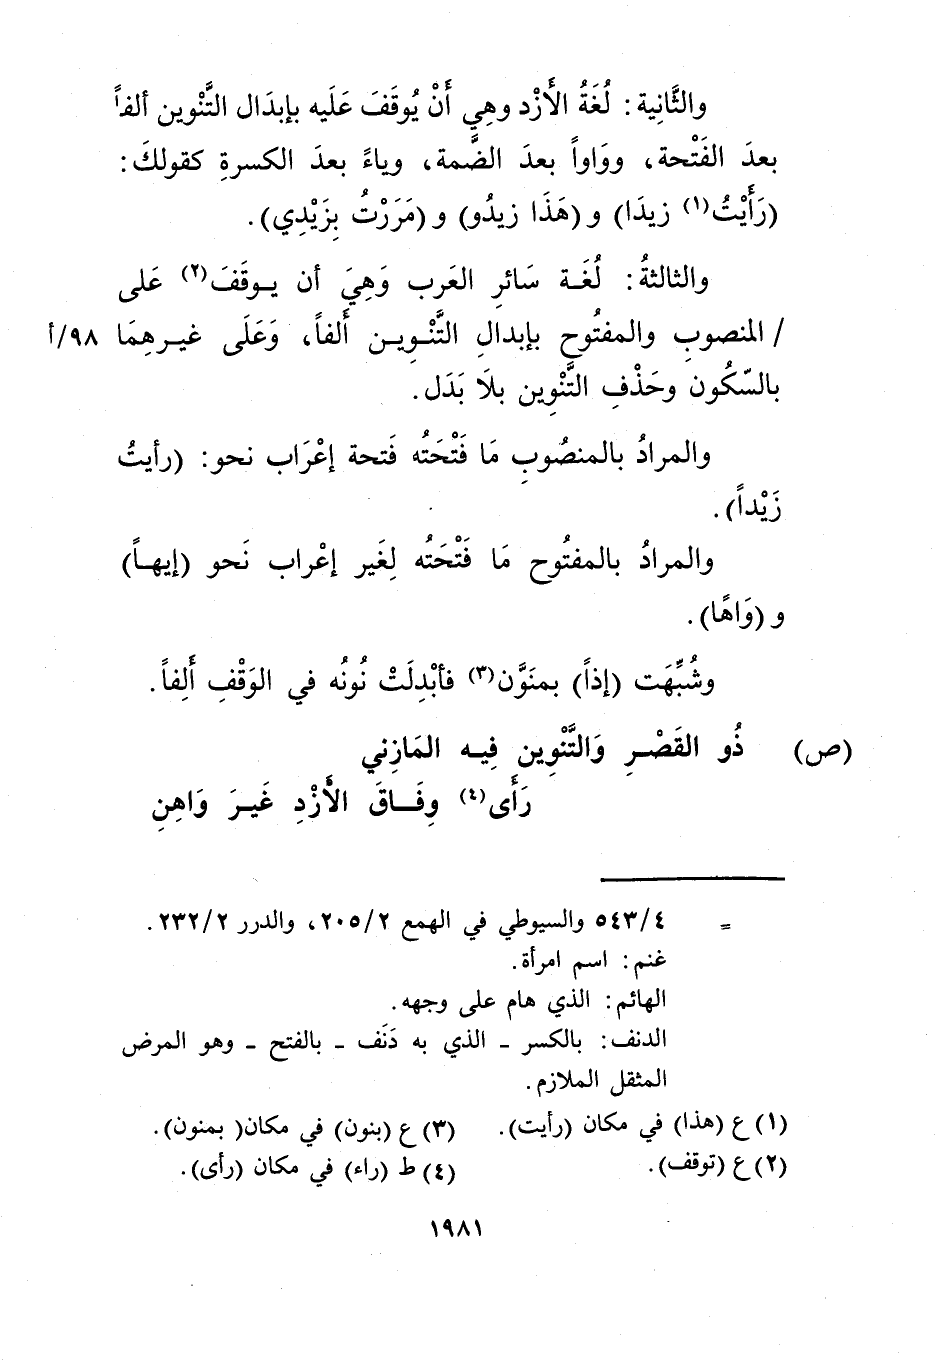 والثَّانِية: لُغَةُ الأَزْد وهِي أَنْ يُوقَفَ عَلَيه بإبدَال التَّنْوين ألفاً
بعدَ الفَتْحة، ووَاواً بعدَ الضَّمة، وياءً بعدَ الكسرةِ كقولكَ:
(رَأَيْتُ(١) زيدَا) و(هَذَا زيدُو) و(مَرَرْتُ بِزَيْدِي).
والثالثةُ: لُغَـة سَائرِ العَرب وَهِيَ أن يـوقَفَ(٢) عَلى
/ المنصوبِ والمفتُوحِ بإبدالِ التَّنْـوِيـن أَلفاً، وَعَلَى غيـرهِمَا ٩٨/أ
بالسّكُون وحَذْفِ التَّنْوِين بلاَ بَدَل.
والمرادُ بالمنصُوبِ مَا فَتْحَتُه فَتحة إعْرَاب نحو: (رأيتُ
زَيْداً).
والمرادُ بالمفتُوح مَا فَتْحَتُه لِغَير إعْراب نَحو (إيهـاً)
و(وَاهًا).
وشُبِّهَت (إذاً) بمنَوَّن(٣) فأبْدِلَتْ نُونُه في الوَقْفِ أَلِفاً.
(ص) ذُو القَصْـرِ وَالتَّنْوِين فِيـه المَازِني
رَأَى(٤) وِفَـاقَ الأَزْدِ غَيـرَ وَاهِنِ
= ٥٤٣/٤ والسيوطي في الهمع ٢٠٥/٢، والدرر ٢٣٢/٢.
غنم: اسم امرأة.
الهائم: الذي هام على وجهه.
الدنف: بالكسر ـ الذي به دَنَف ـ بالفتح ـ وهو المرض
المثقل الملازم.
(١) ع (هذا) في مكان (رأيت). (٣) ع (بنون) في مكان( بمنون).
(٢) ع (توقف). (٤) ط (راء) في مكان (رأى).
١٩٨١